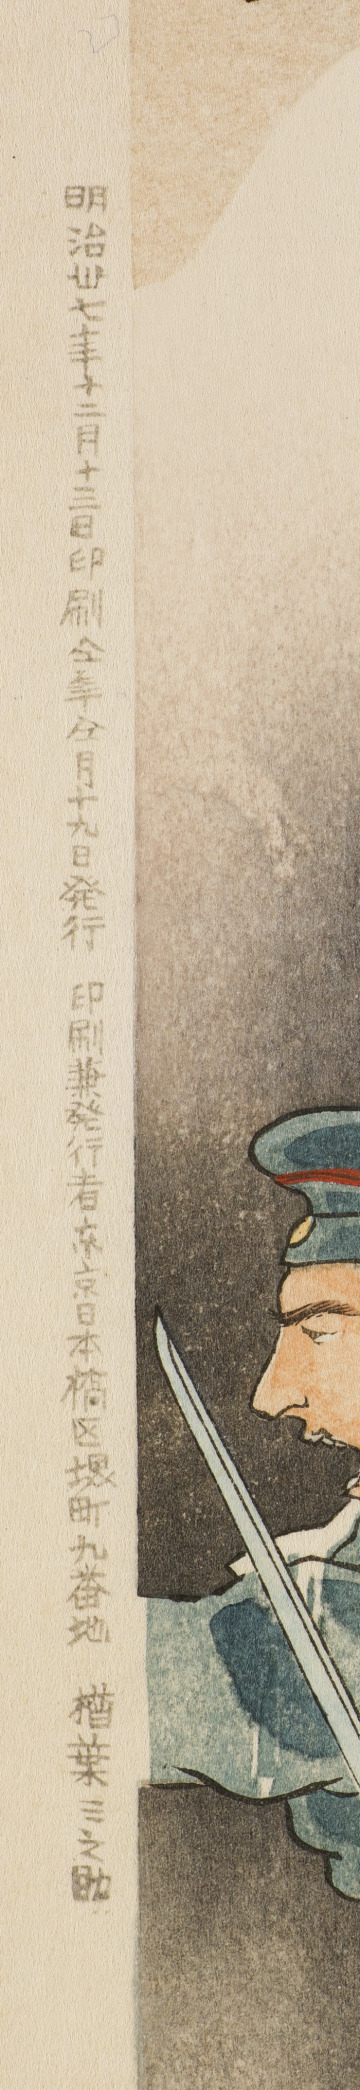 明治卅七年十二月十三日印刷仝年仝月十九日発行　印刷兼発行者東京日本橋区堀町九番地　楢葉三之助